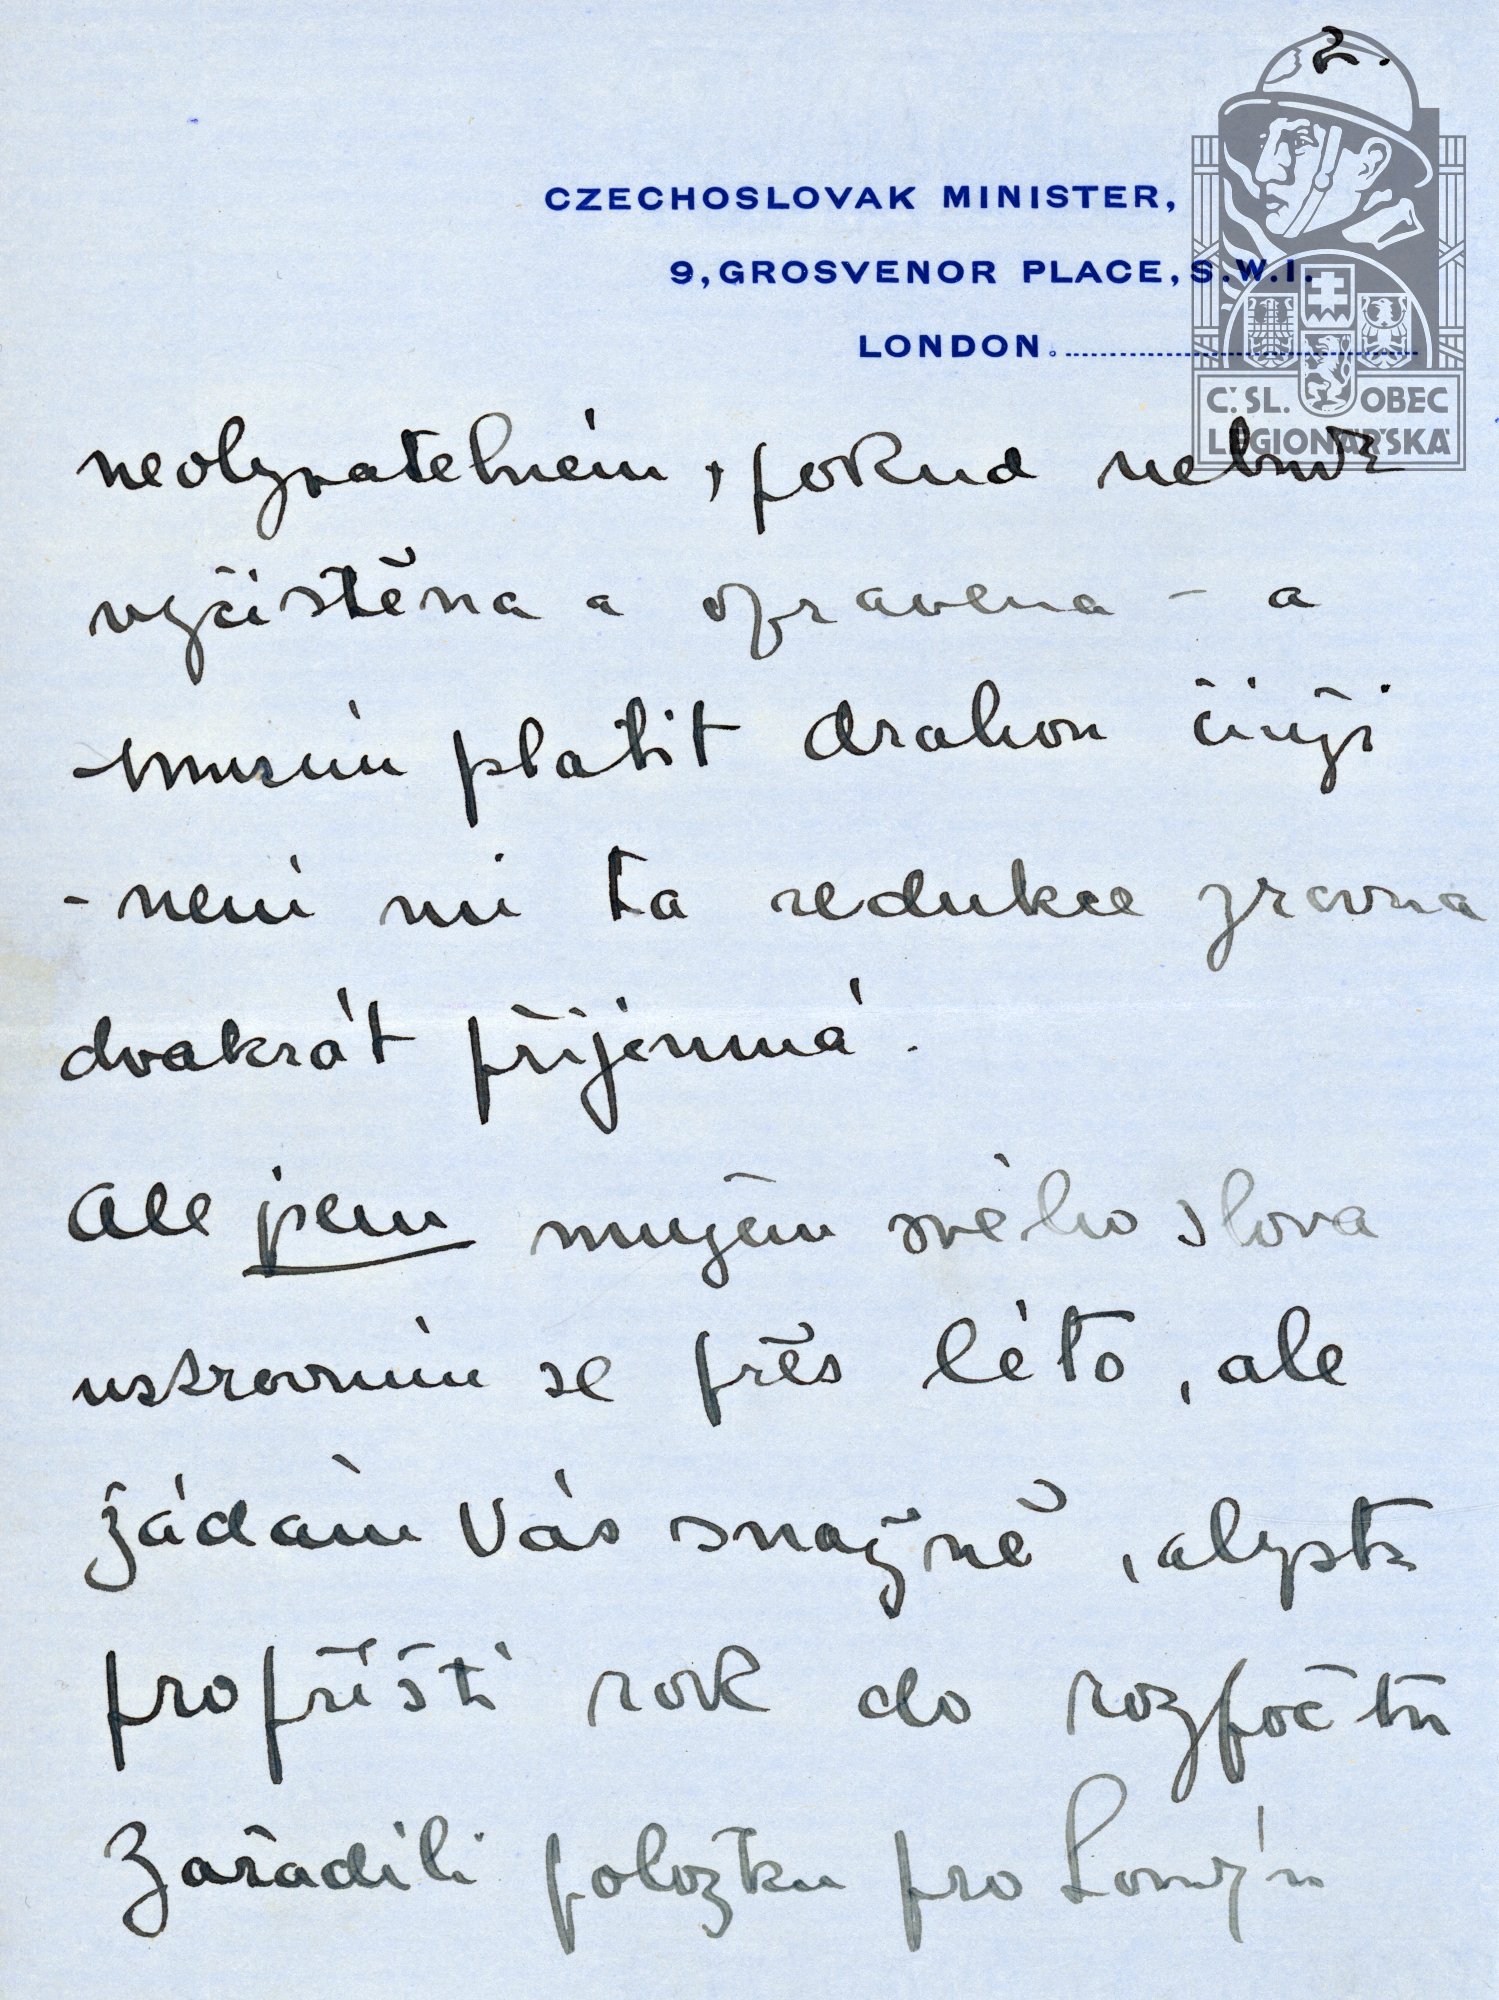 2.
CZECHOSLOVAK MINISTER,
9, GROSVENOR PLACE, S.W.1.
LONDON.
Č.SL. OBEC
LEGIONÁŘSKÁ
neobyvatelném, pokud nebude
vyčistěna a opravena - a
musím platit drahou činži
- není mi ta redukce zrovna
dvakrát příjemná.
Ale jsem mužem svého slova
uskrovním se přes léto, ale
žádám Vás snažně, abyste
pro příští rok do rozpočtu
zařadili položku pro Londýn